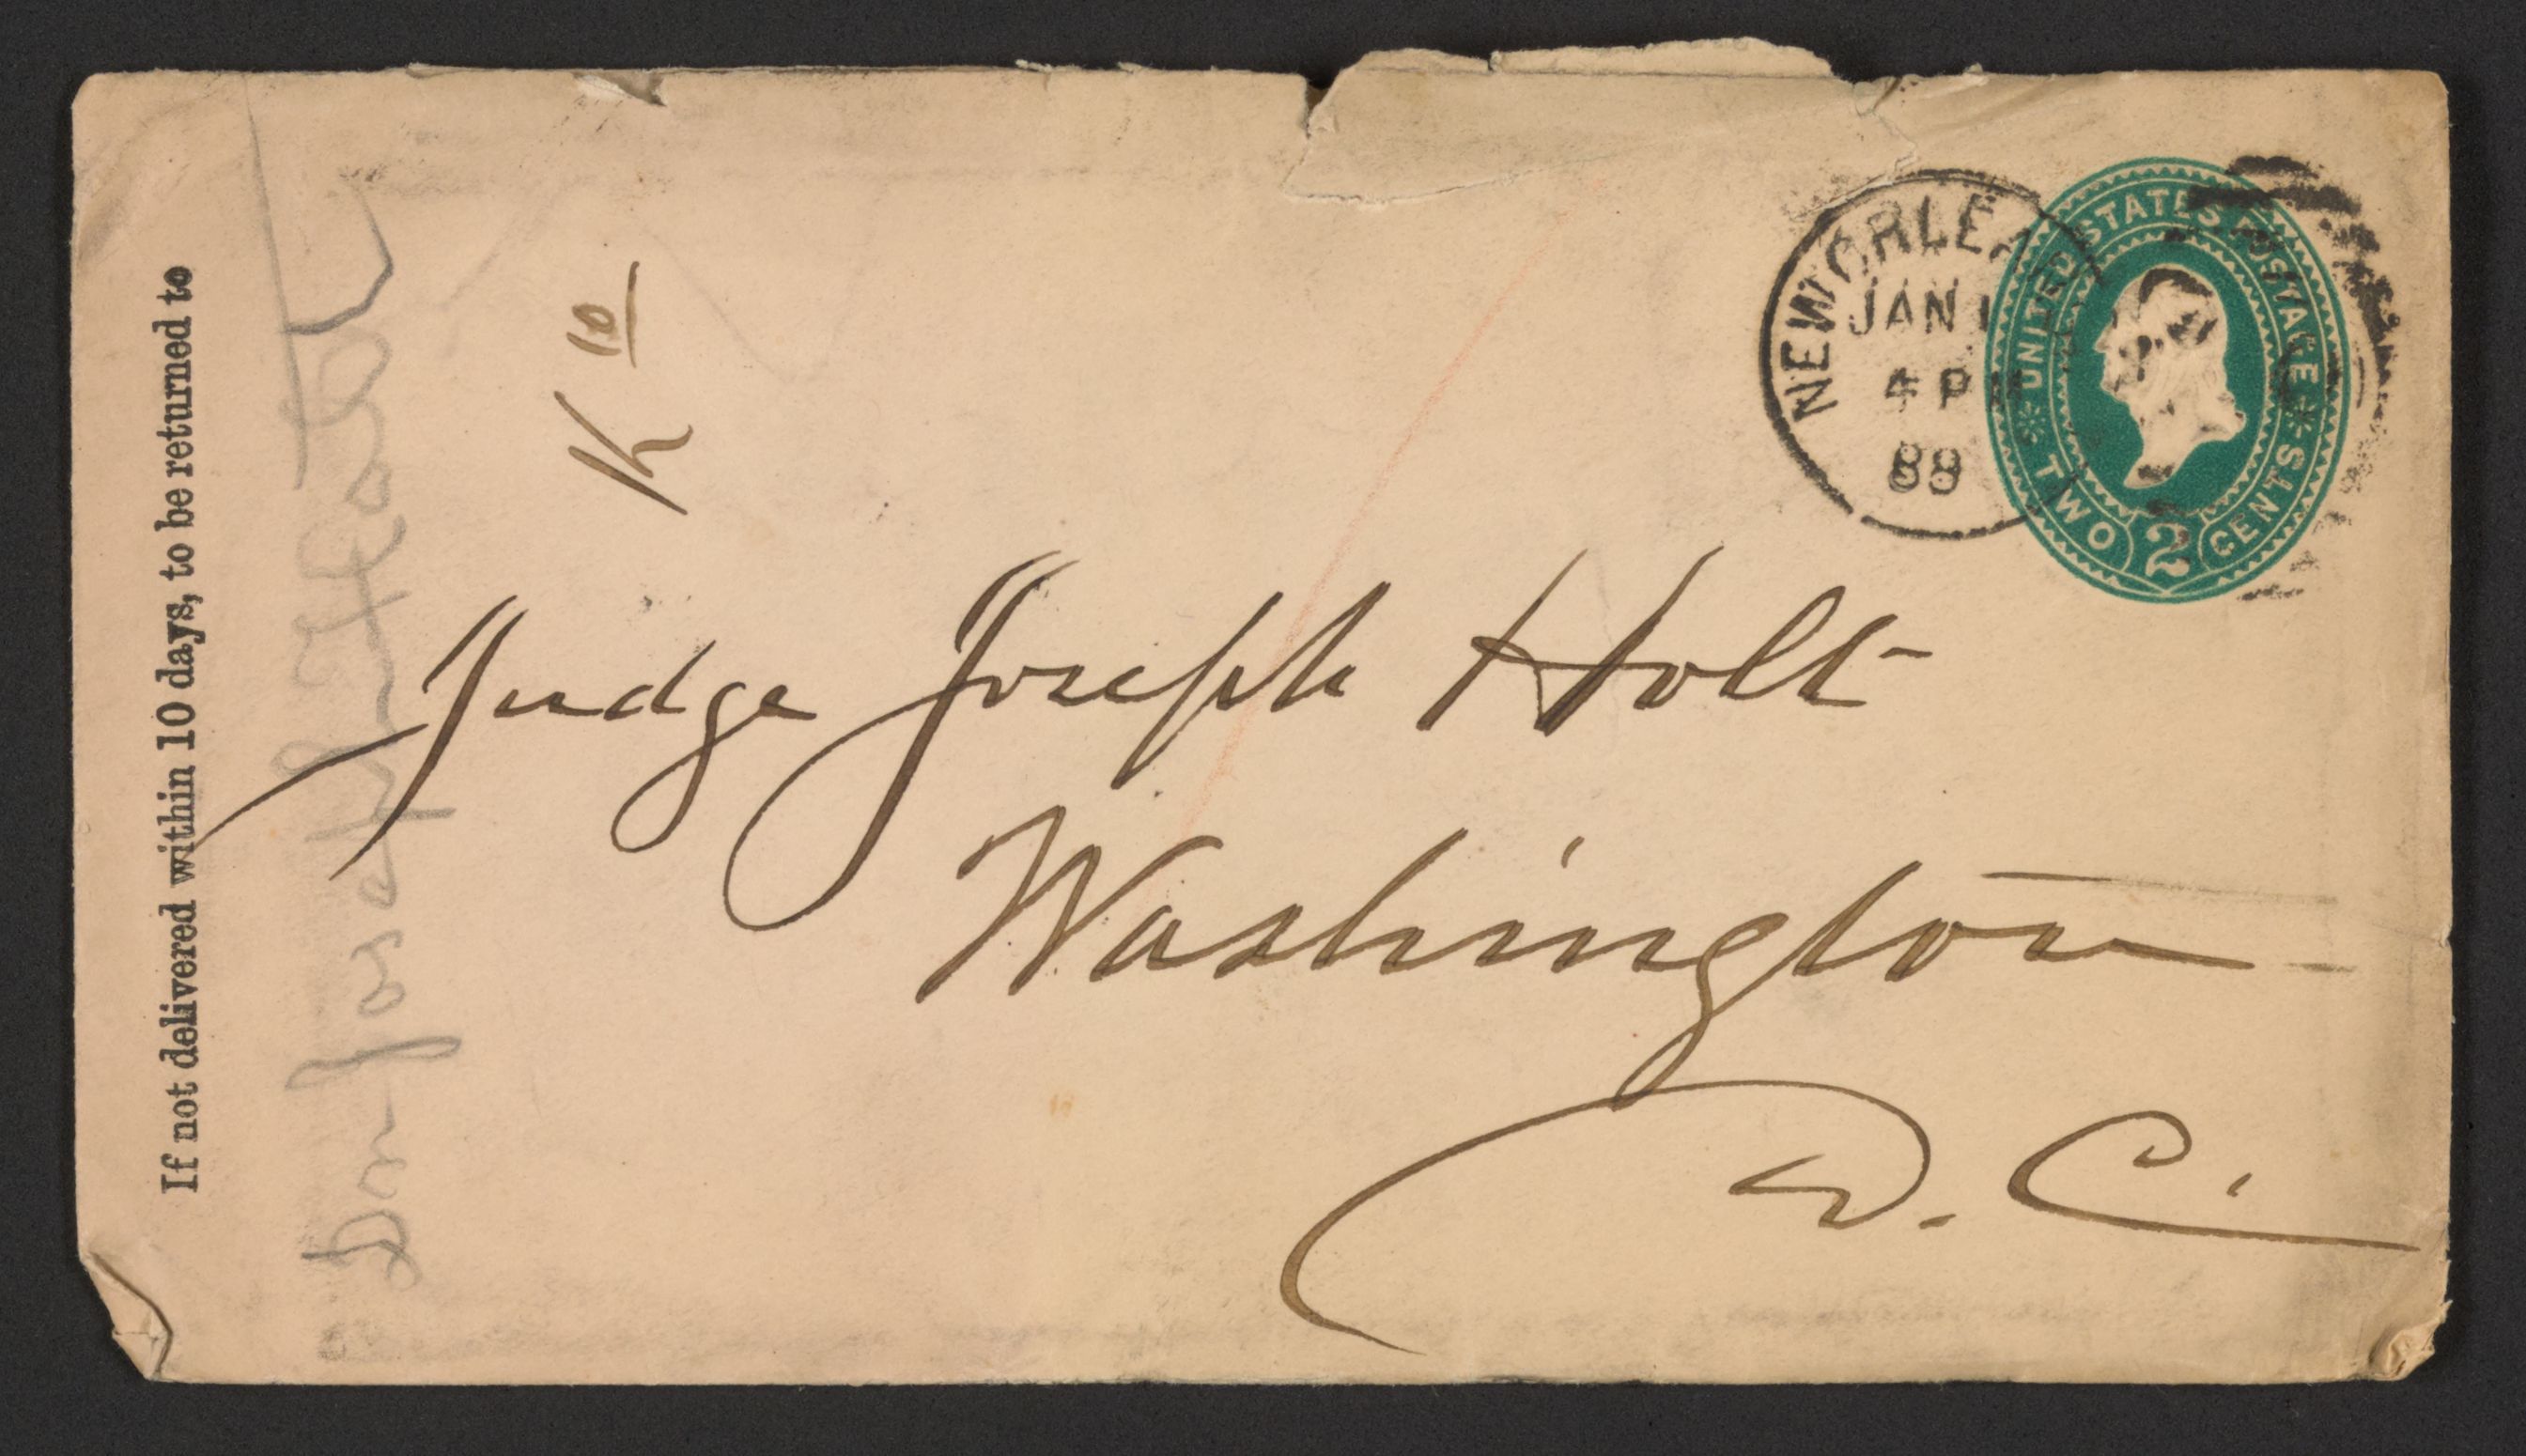 If not delivered within 10 days, to be returned to
K 10
NEW ORLEA
JAN 1
4 PM
88
UNITED STATES POSTAGE
TWO 2 CENTS
Judge Joseph Holt
Washington
D. C.